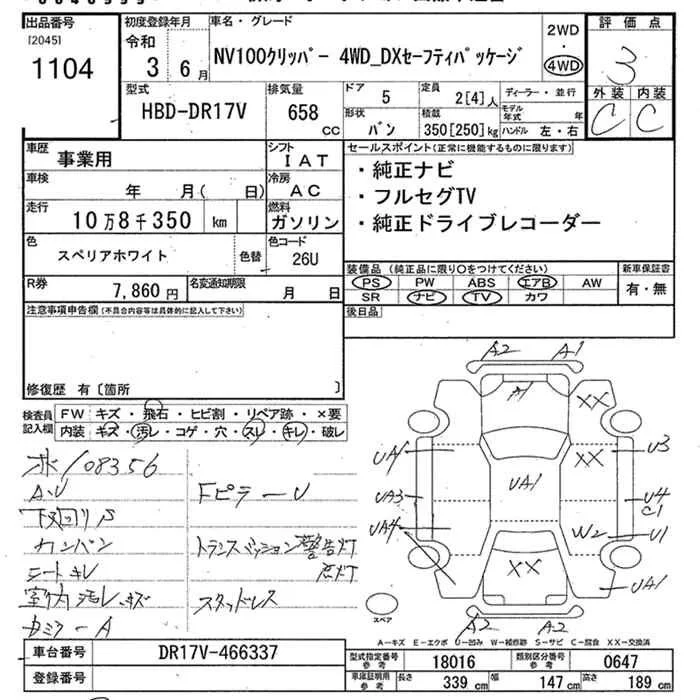 出品番号
[2045]
1104
初度登録年月
令和
3 6月
車名・グレード
NV100クリッパー 4WD_DXセーフティパッケージ
2WD
・
4WD
評価点
3
外装 内装
C C
型式
HBD-DR17V
排気量
658 cc
ドア 5
定員 2[4]人
ディーラー・並行
形状 バン
積載 350[250]kg
モデル年式 年
ハンドル 左・右
車歴 事業用
シフト IAT
車検 年 月( 日)
冷房 AC
走行 10万8千350 km
燃料 ガソリン
色 スペリアホワイト 色替
色コード 26U
R券 7,860円
名変通知期限 月 日
セールスポイント(正常に機能するものに限ります)
・純正ナビ
・フルセグTV
・純正ドライブレコーダー
装備品(純正品に限り○をつけてください)
新車保証書
PS PW ABS エアB AW
有・無
SR ナビ TV カワ
後日品
注意事項申告欄(不具合内容等は具体的に記入して下さい)
修復歴 有〔箇所 〕
検査員記入欄
FW キズ・飛石・ヒビ割・リペア跡・×要
内装 キズ・汚レ・コゲ・穴・スレ・キレ・破レ
108356
A・U
下回りS
カンバン
シートキレ
室内汚レ、キズ
カミラーA
FピラーU
トランスミッション警告灯
点灯
スタッドレス
A2 A1
A1
XX
XX
UA1
UA3
UA4
UA1
U3
U4
C1
W2 U1
XX
UA1
A2 A2
スペア
A-キズ E-エクボ U-凹み W-補修跡 S-サビ C-腐食 XX-交換済
車台番号 DR17V-466337
登録番号
型式指定番号参考 18016
類別区分番号参考 0647
車庫証明用参考 長さ 339cm 幅 147cm 高さ 189cm